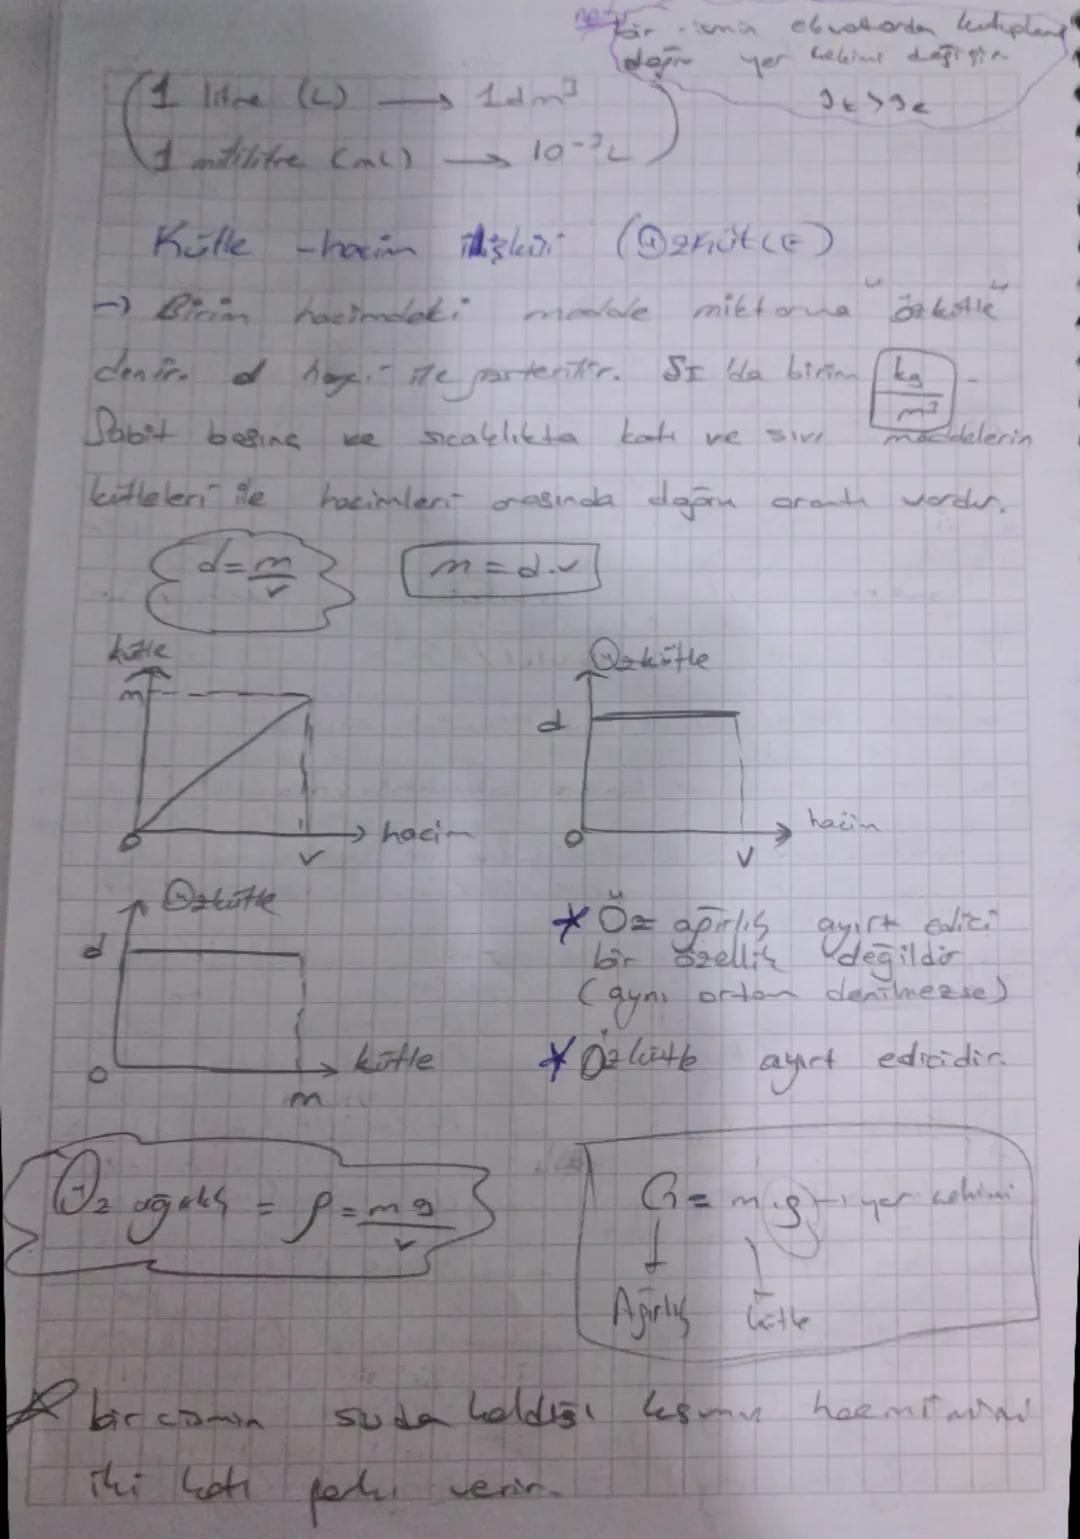 bir cismin ekvatordan kutuplara
doğru yer çekimi değişir.
gk > ge
1 litre (L) → 1 dm³
1 mililitre (mL) → 10⁻³ L
Kütle - hacim ilişkisi (ÖZKÜTLE)
→ Birim hacimdeki madde miktarına "özkütle"
denir. d harfi ile gösterilir. SI 'da birim kg/m³
Sabit basınç ve sıcaklıkta katı ve sıvı maddelerin
kütleleri ile hacimleri arasında doğru orantı vardır.
d = m/v m = d.v
kütle
m
0 v hacim
Özkütle
d
0 v hacim
Özkütle
d
0 m kütle
* Öz ağırlık ayırt edici
bir özellik değildir
(aynı ortam denilmezse)
* Özkütle ayırt edicidir.
Öz ağırlık = ρ = m g / v
G = m.g → yer çekimi
Ağırlık kütle
bir cismin suda kısmın
iki katı farkı verir.